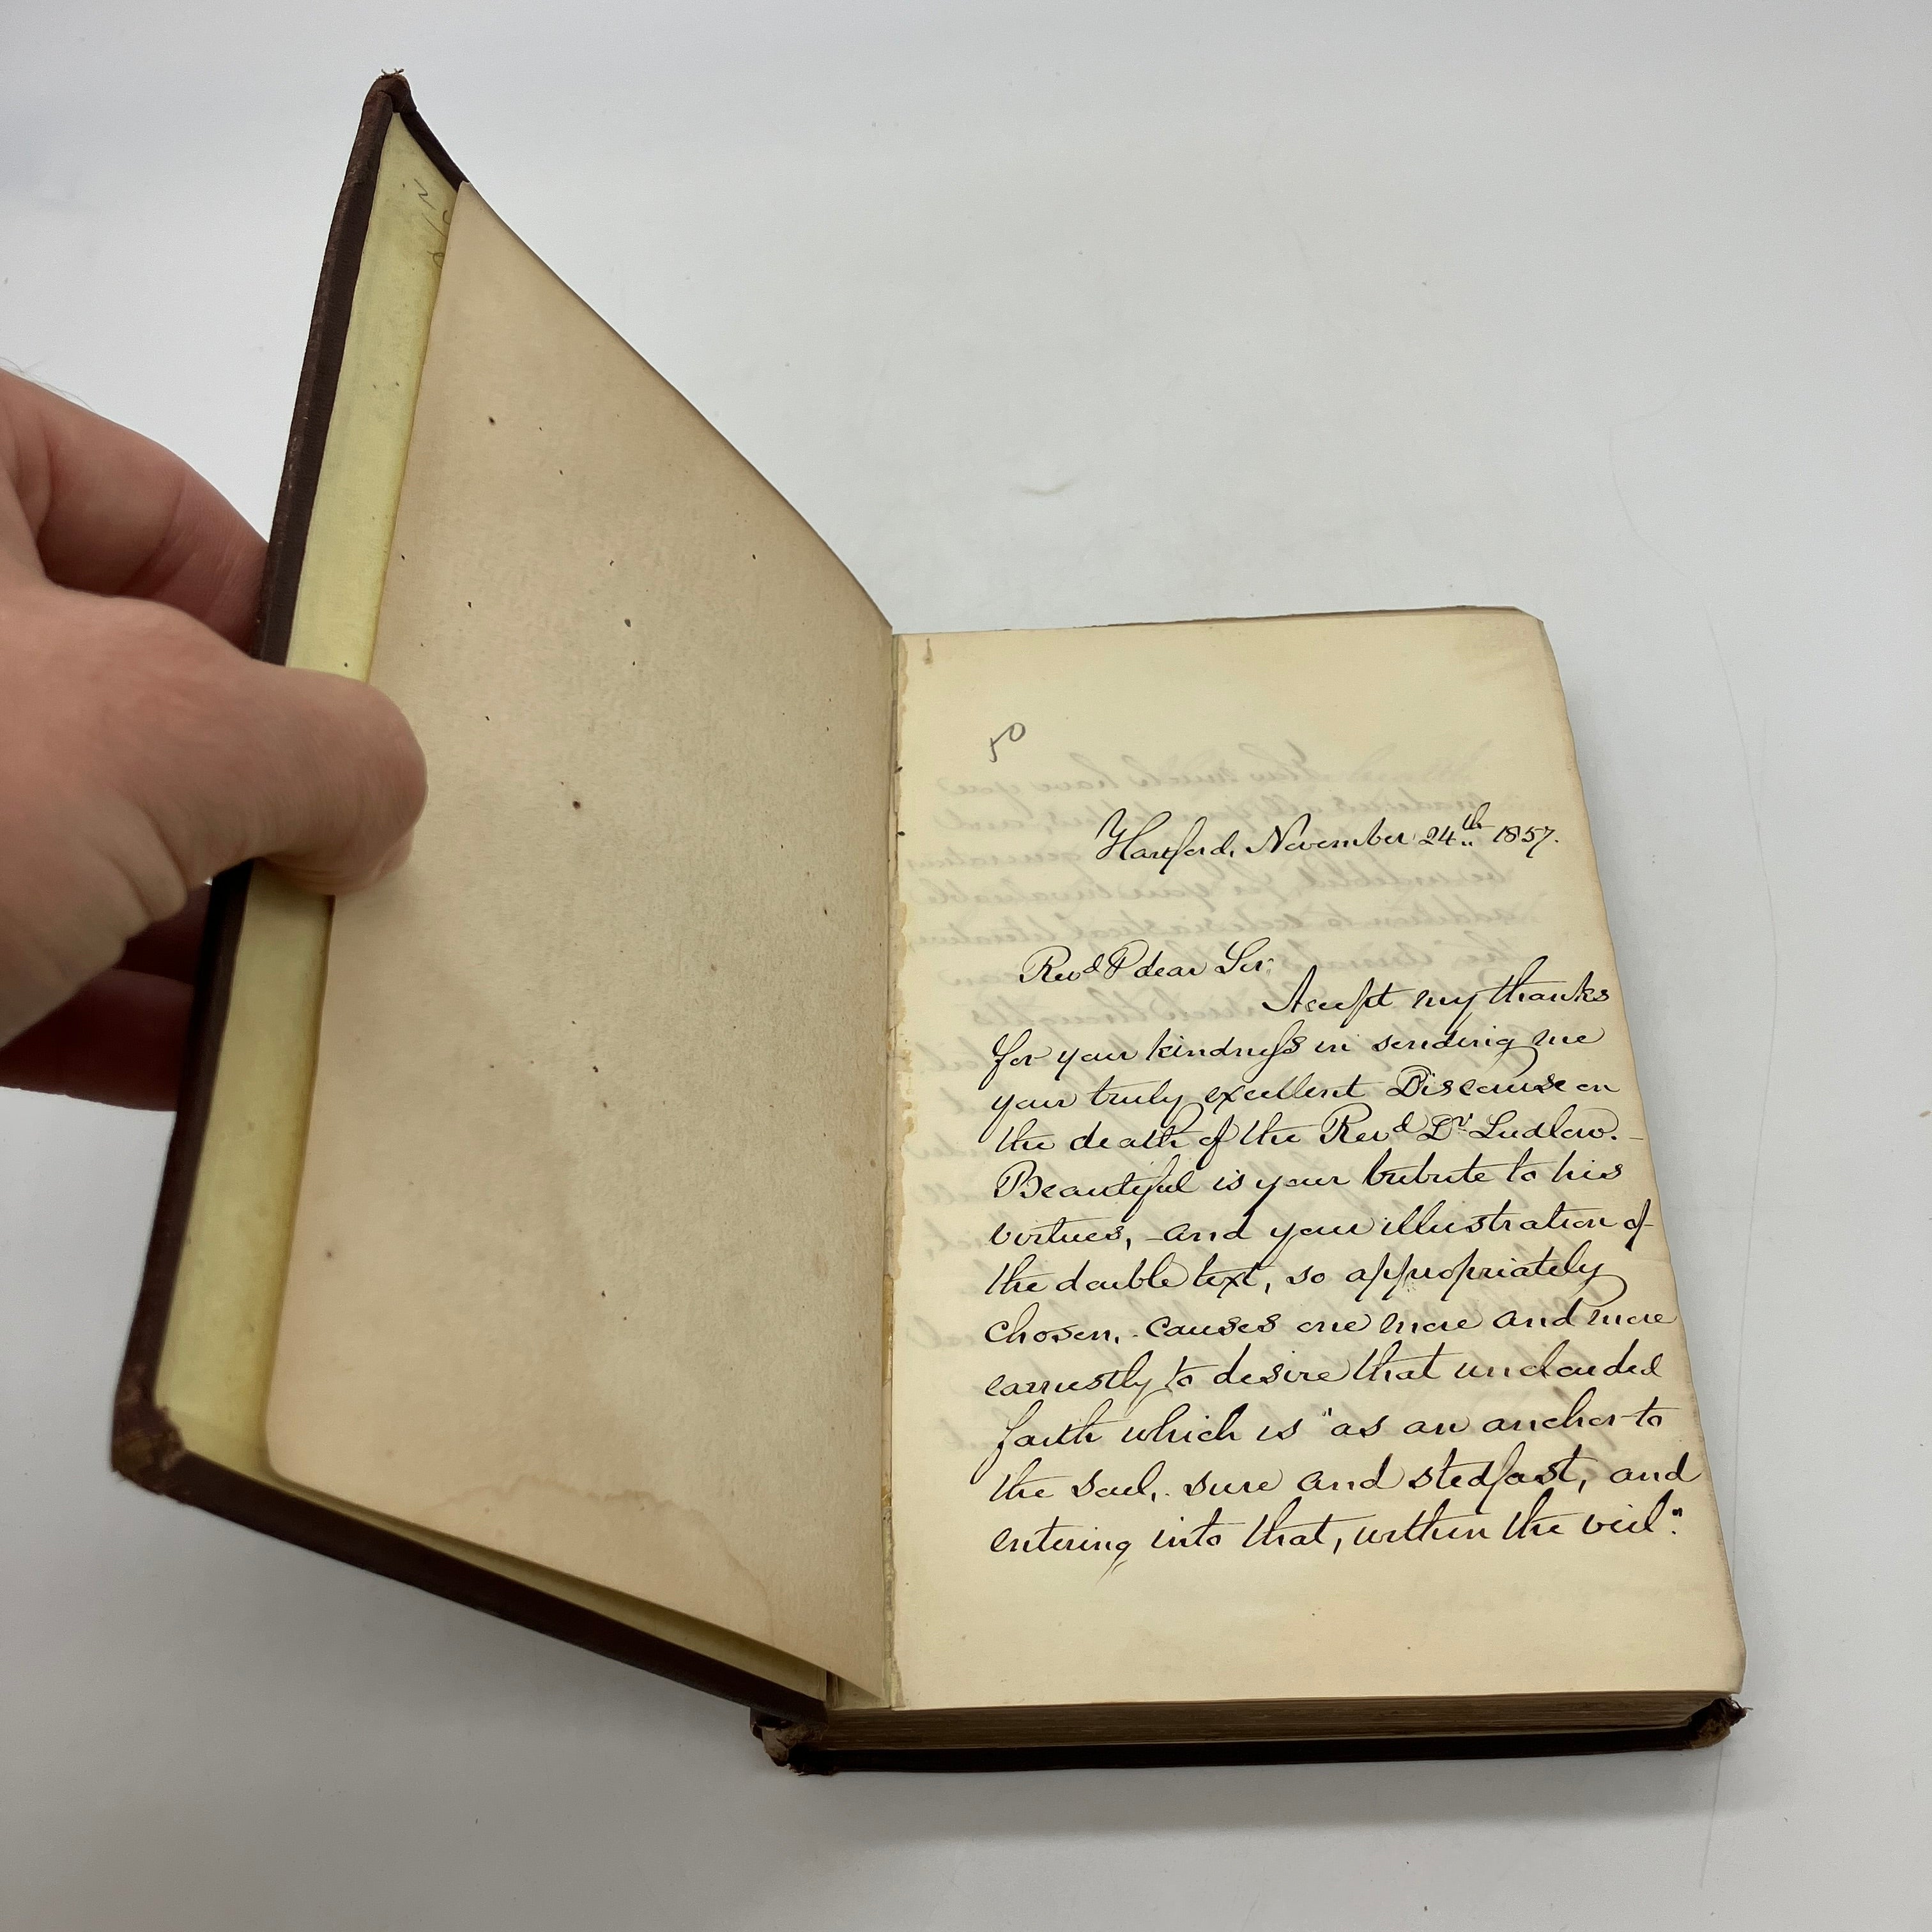 50
Hartford, November 24th 1857.
Revd & dear Sir:
Accept my thanks
for your kindness in sending me
your truly excellent Discourse on
the death of the Revd Dr Ludlow. –
Beautiful is your tribute to his
virtues, - and your illustration of
the double text, so appropriately
chosen, - causes one more and more
earnestly to desire that unclouded
faith which is "as an anchor to
the soul, sure and stedfast, and
entering into that, within the veil."